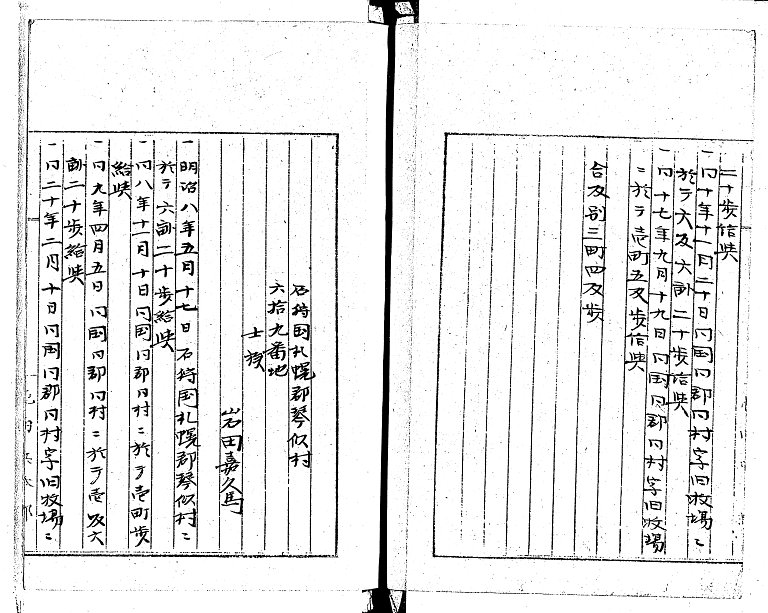 二十歩給與
一同十年十一月二十日同国同郡同村字旧牧場ニ
於テ六反六畝二十歩給與
一同十七年九月十九日同国同郡同村字旧牧場
ニ於テ壱町五反歩給與
合反別三町四反歩
石狩国札幌郡琴似村
六拾九番地
士族
岩田嘉久馬
一明治八年五月十七日石狩国札幌郡琴似村ニ
於テ六畝二十歩給與
一同八年十一月十日同国同郡同村ニ於テ壱町歩
給與
一同九年四月五日同国同郡同村ニ於テ壱反六
畝二十歩給與
一同二十年二月十日同国同郡同村字旧牧場ニ